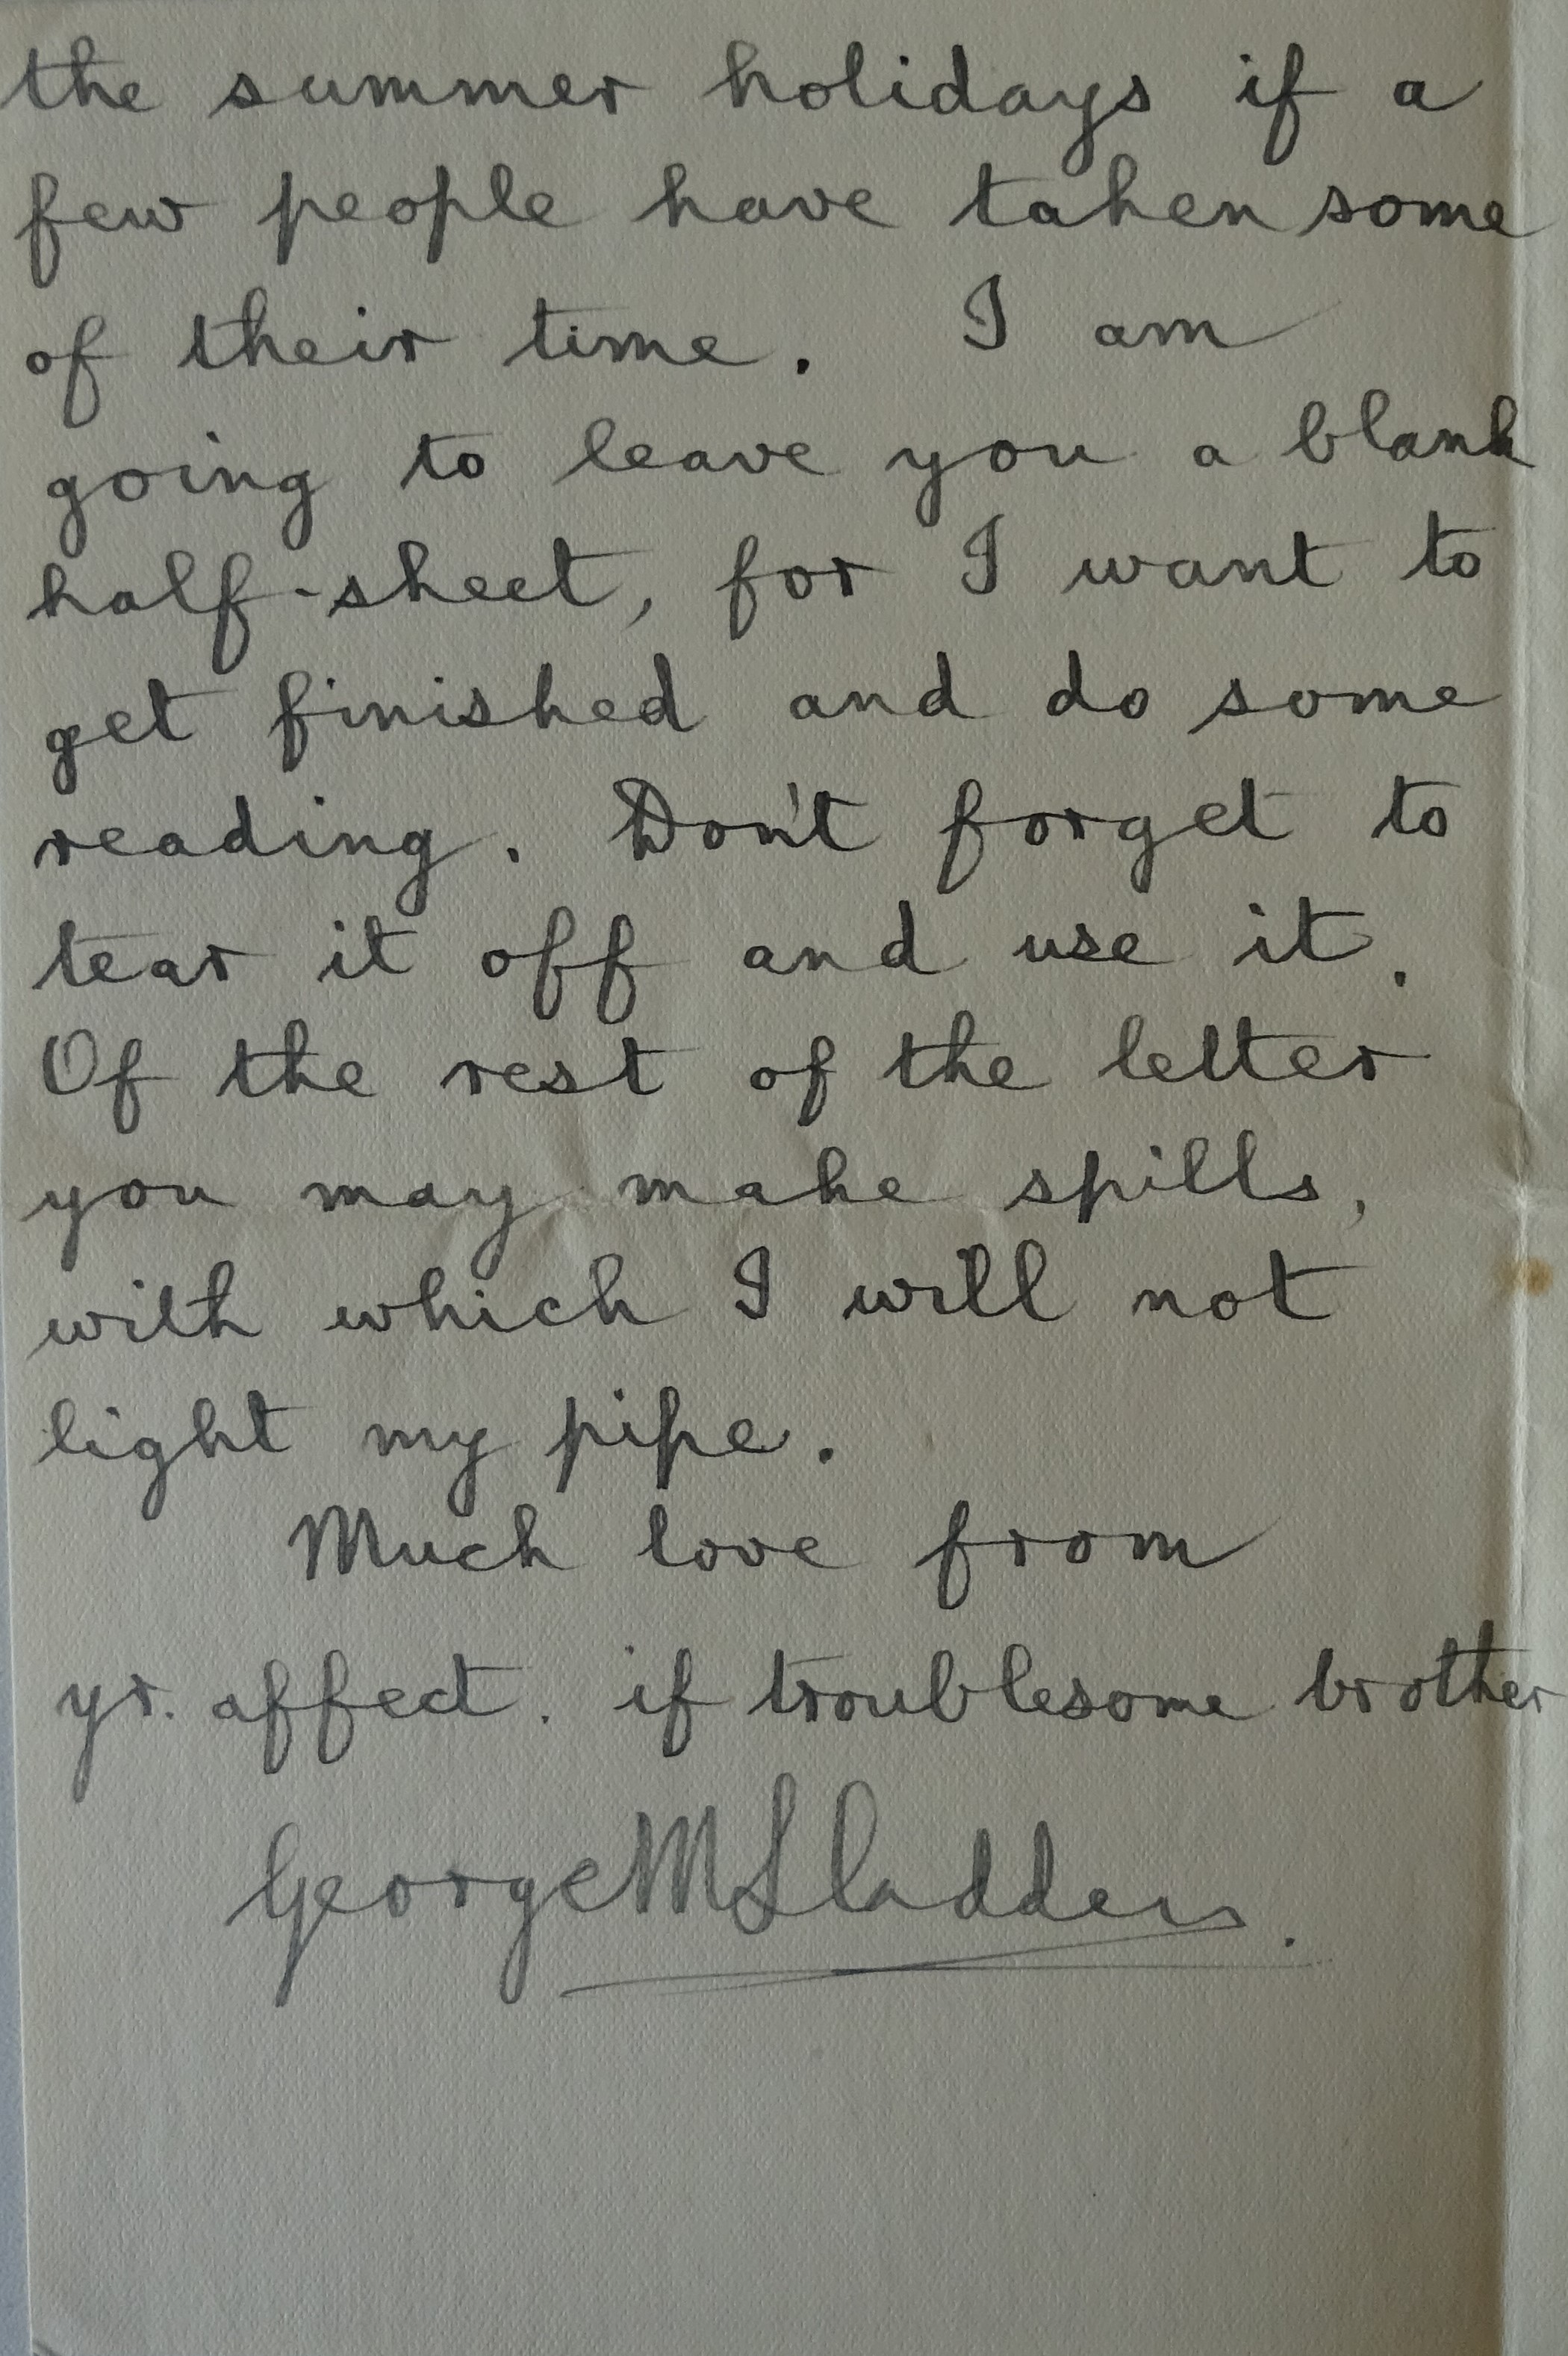 the summer holidays if a
few people have taken some
of their time. I am
going to leave you a blank
half-sheet, for I want to
get finished and do some
reading. Don't forget to
tear it off and use it.
Of the rest of the letter
you may make spills,
with which I will not
light my pipe.
Much love from
yr. affect. if troublesome brother
George M Sladden.